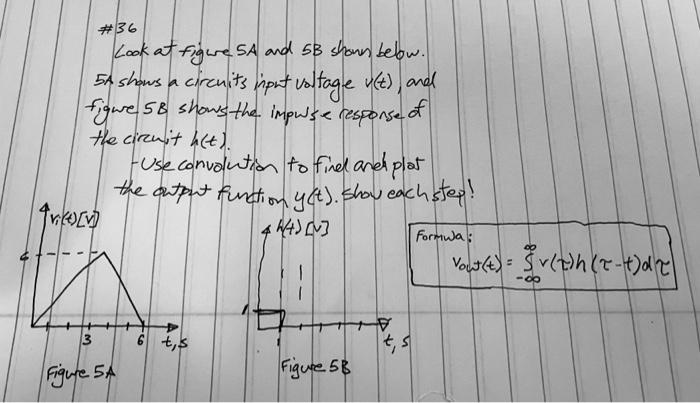 #36
Look at figure 5A and 5B shown below.
5A shows a circuits input voltage v(t), and
figure 5B shows the impulse response of
the circuit h(t).
-Use convolution to find and plot
the output function y(t). Show each step!
vi(t)[v]
6
3
6
t,s
Figure 5A
h(t)[v]
1
1
t,s
Figure 5B
Formula:
Vout(t) = ∫_{-∞}^{∞} v(τ)h(τ-t)dτ